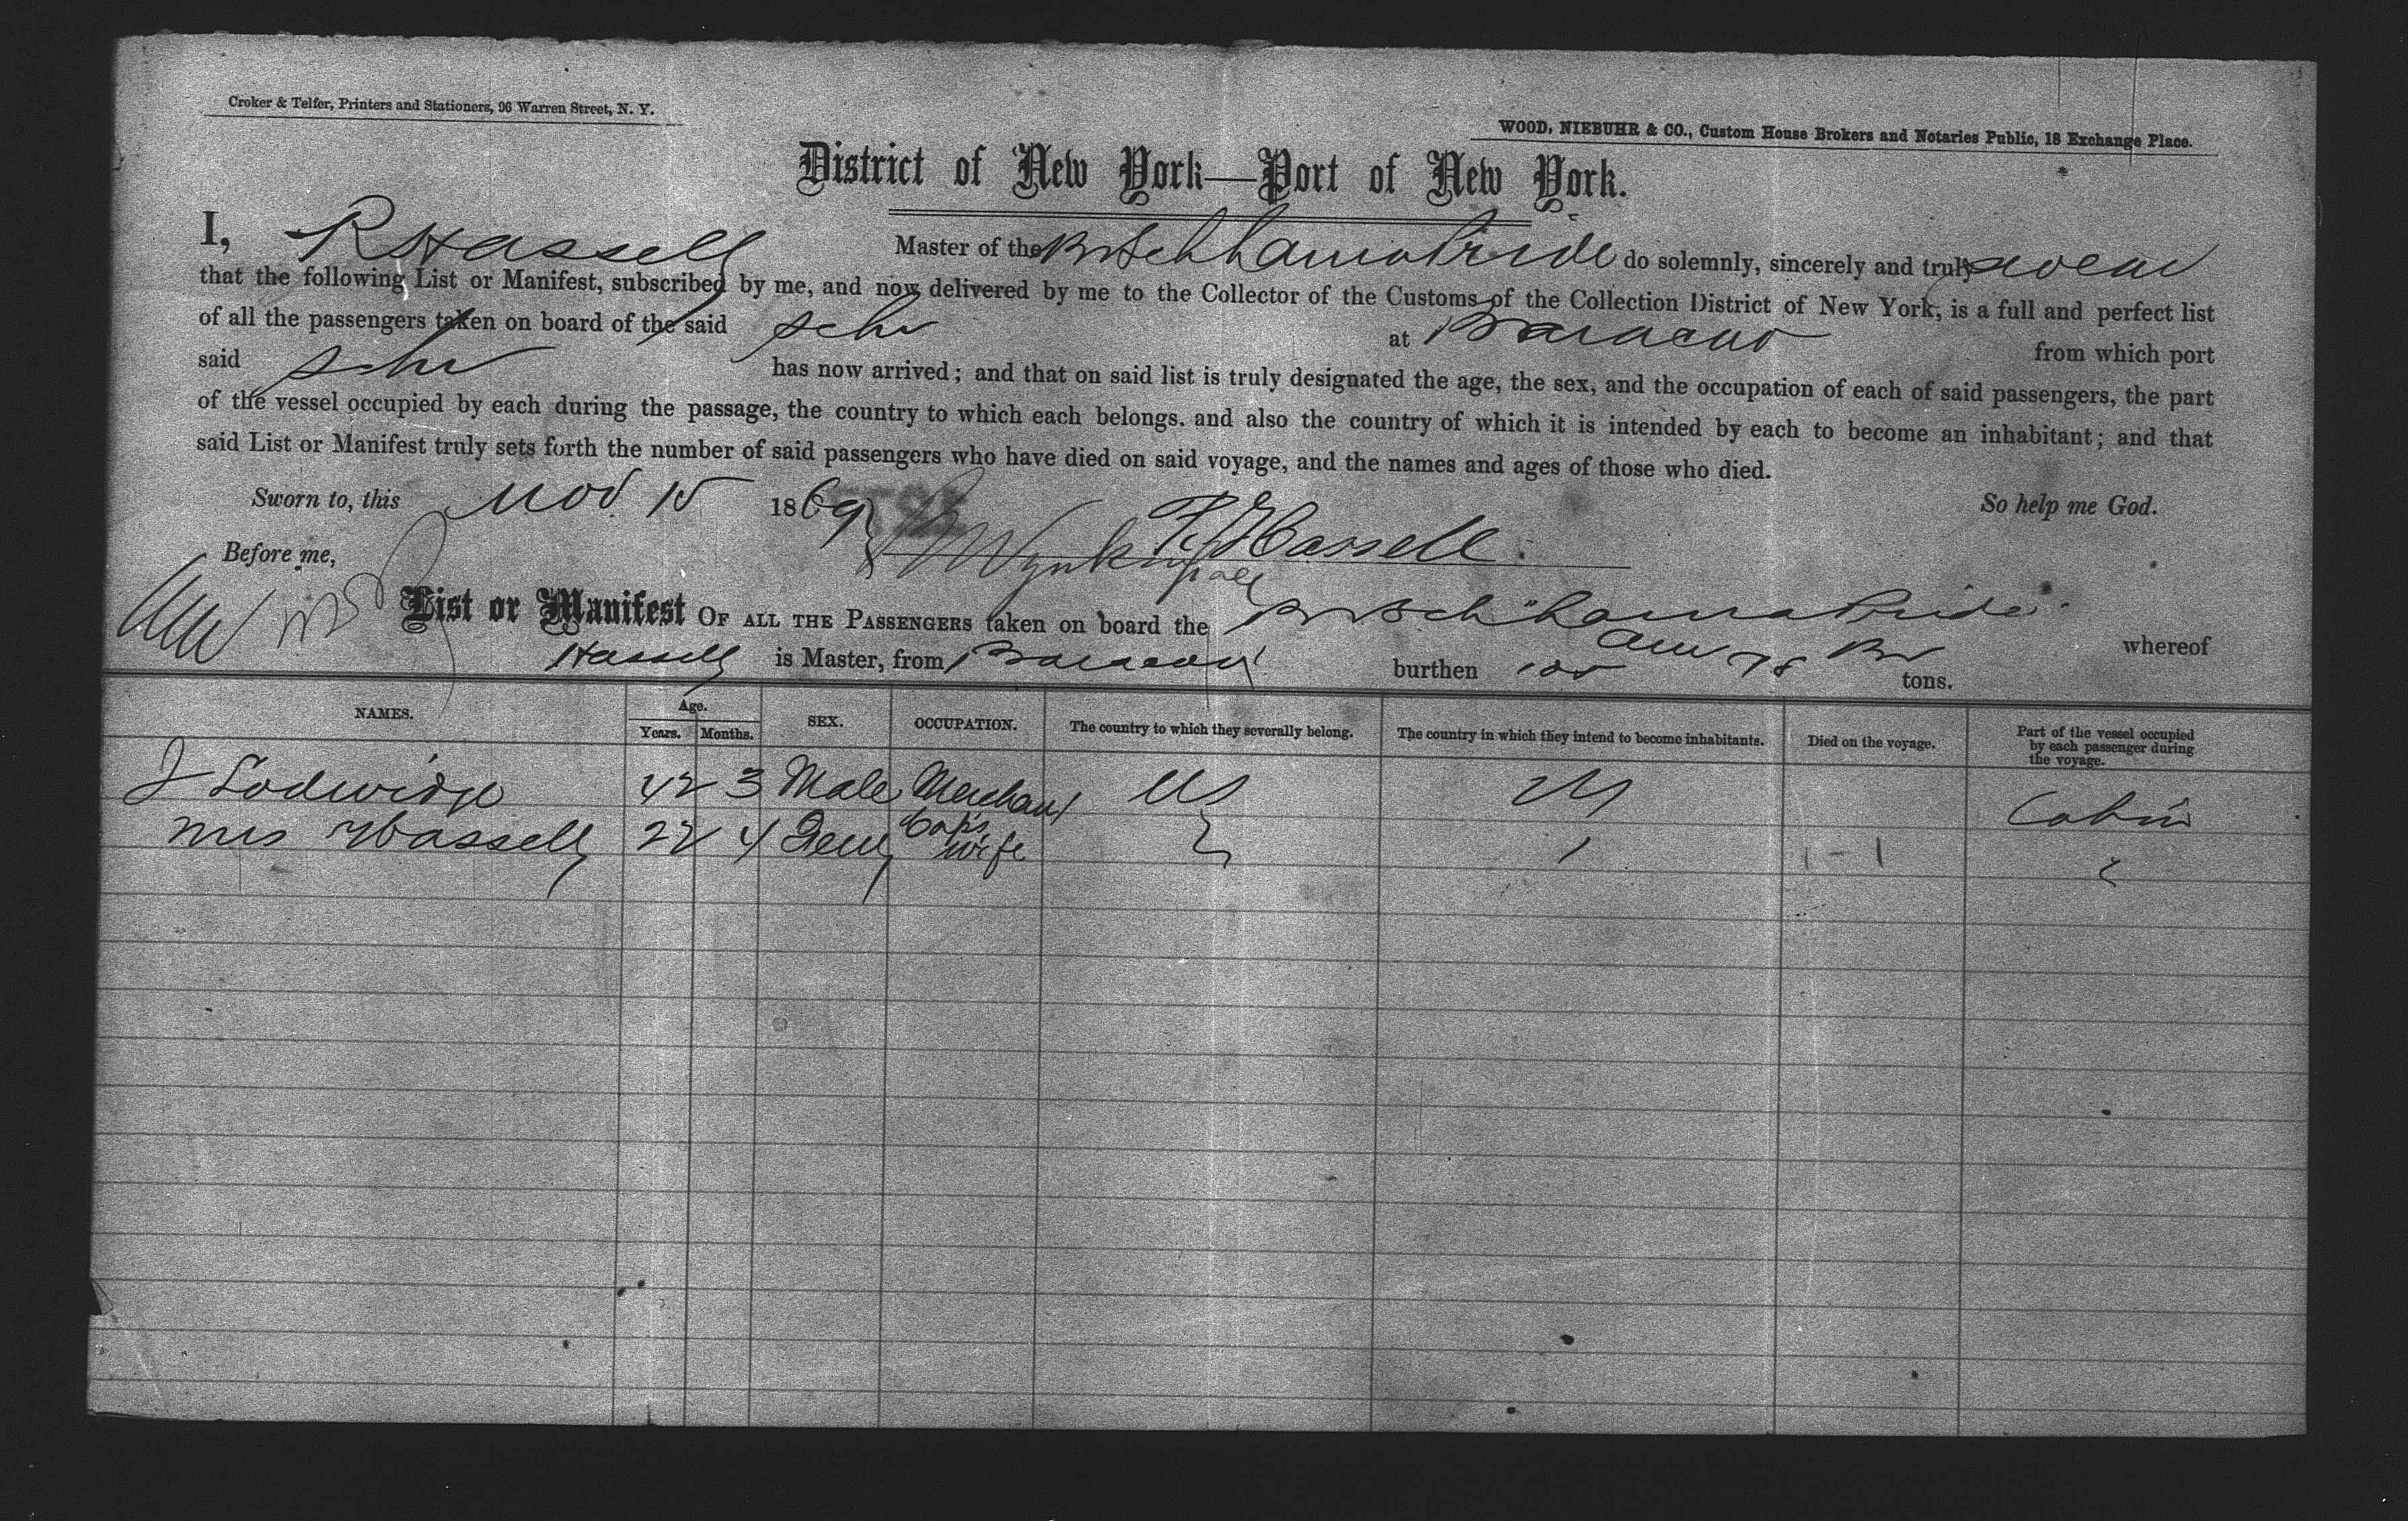 Croker & Telfer, Printers and Stationers, 96 Warren Street, N. Y.
WOOD, NIEBUHR & CO., Custom House Brokers and Notaries Public, 18 Exchange Place.
District of New York—Port of New York.
I, R Hassell Master of the Br Sch Pride do solemnly, sincerely and truly swear
that the following List or Manifest, subscribed by me, and now delivered by me to the Collector of the Customs of the Collection District of New York, is a full and perfect list
of all the passengers taken on board of the said Schr at Baracao from which port
said Schr has now arrived; and that on said list is truly designated the age, the sex, and the occupation of each of said passengers, the part
of the vessel occupied by each during the passage, the country to which each belongs. and also the country of which it is intended by each to become an inhabitant; and that
said List or Manifest truly sets forth the number of said passengers who have died on said voyage, and the names and ages of those who died.
Sworn to, this Nov. 15 1869 So help me God.
Before me, R Hassell.
List or Manifest OF ALL THE PASSENGERS taken on board the Br Sch Pride whereof
Hassell is Master, from burthen 105 Am 78 Br tons.
NAMES. Age. Years. Months. SEX. OCCUPATION. The country to which they severally belong. The country in which they intend to become inhabitants. Died on the voyage. Part of the vessel occupied by each passenger during the voyage.
J Lodwidge 42 3 Male Merchant US US Cabin
Mrs Hassell 22 4 Fem Cap's wife